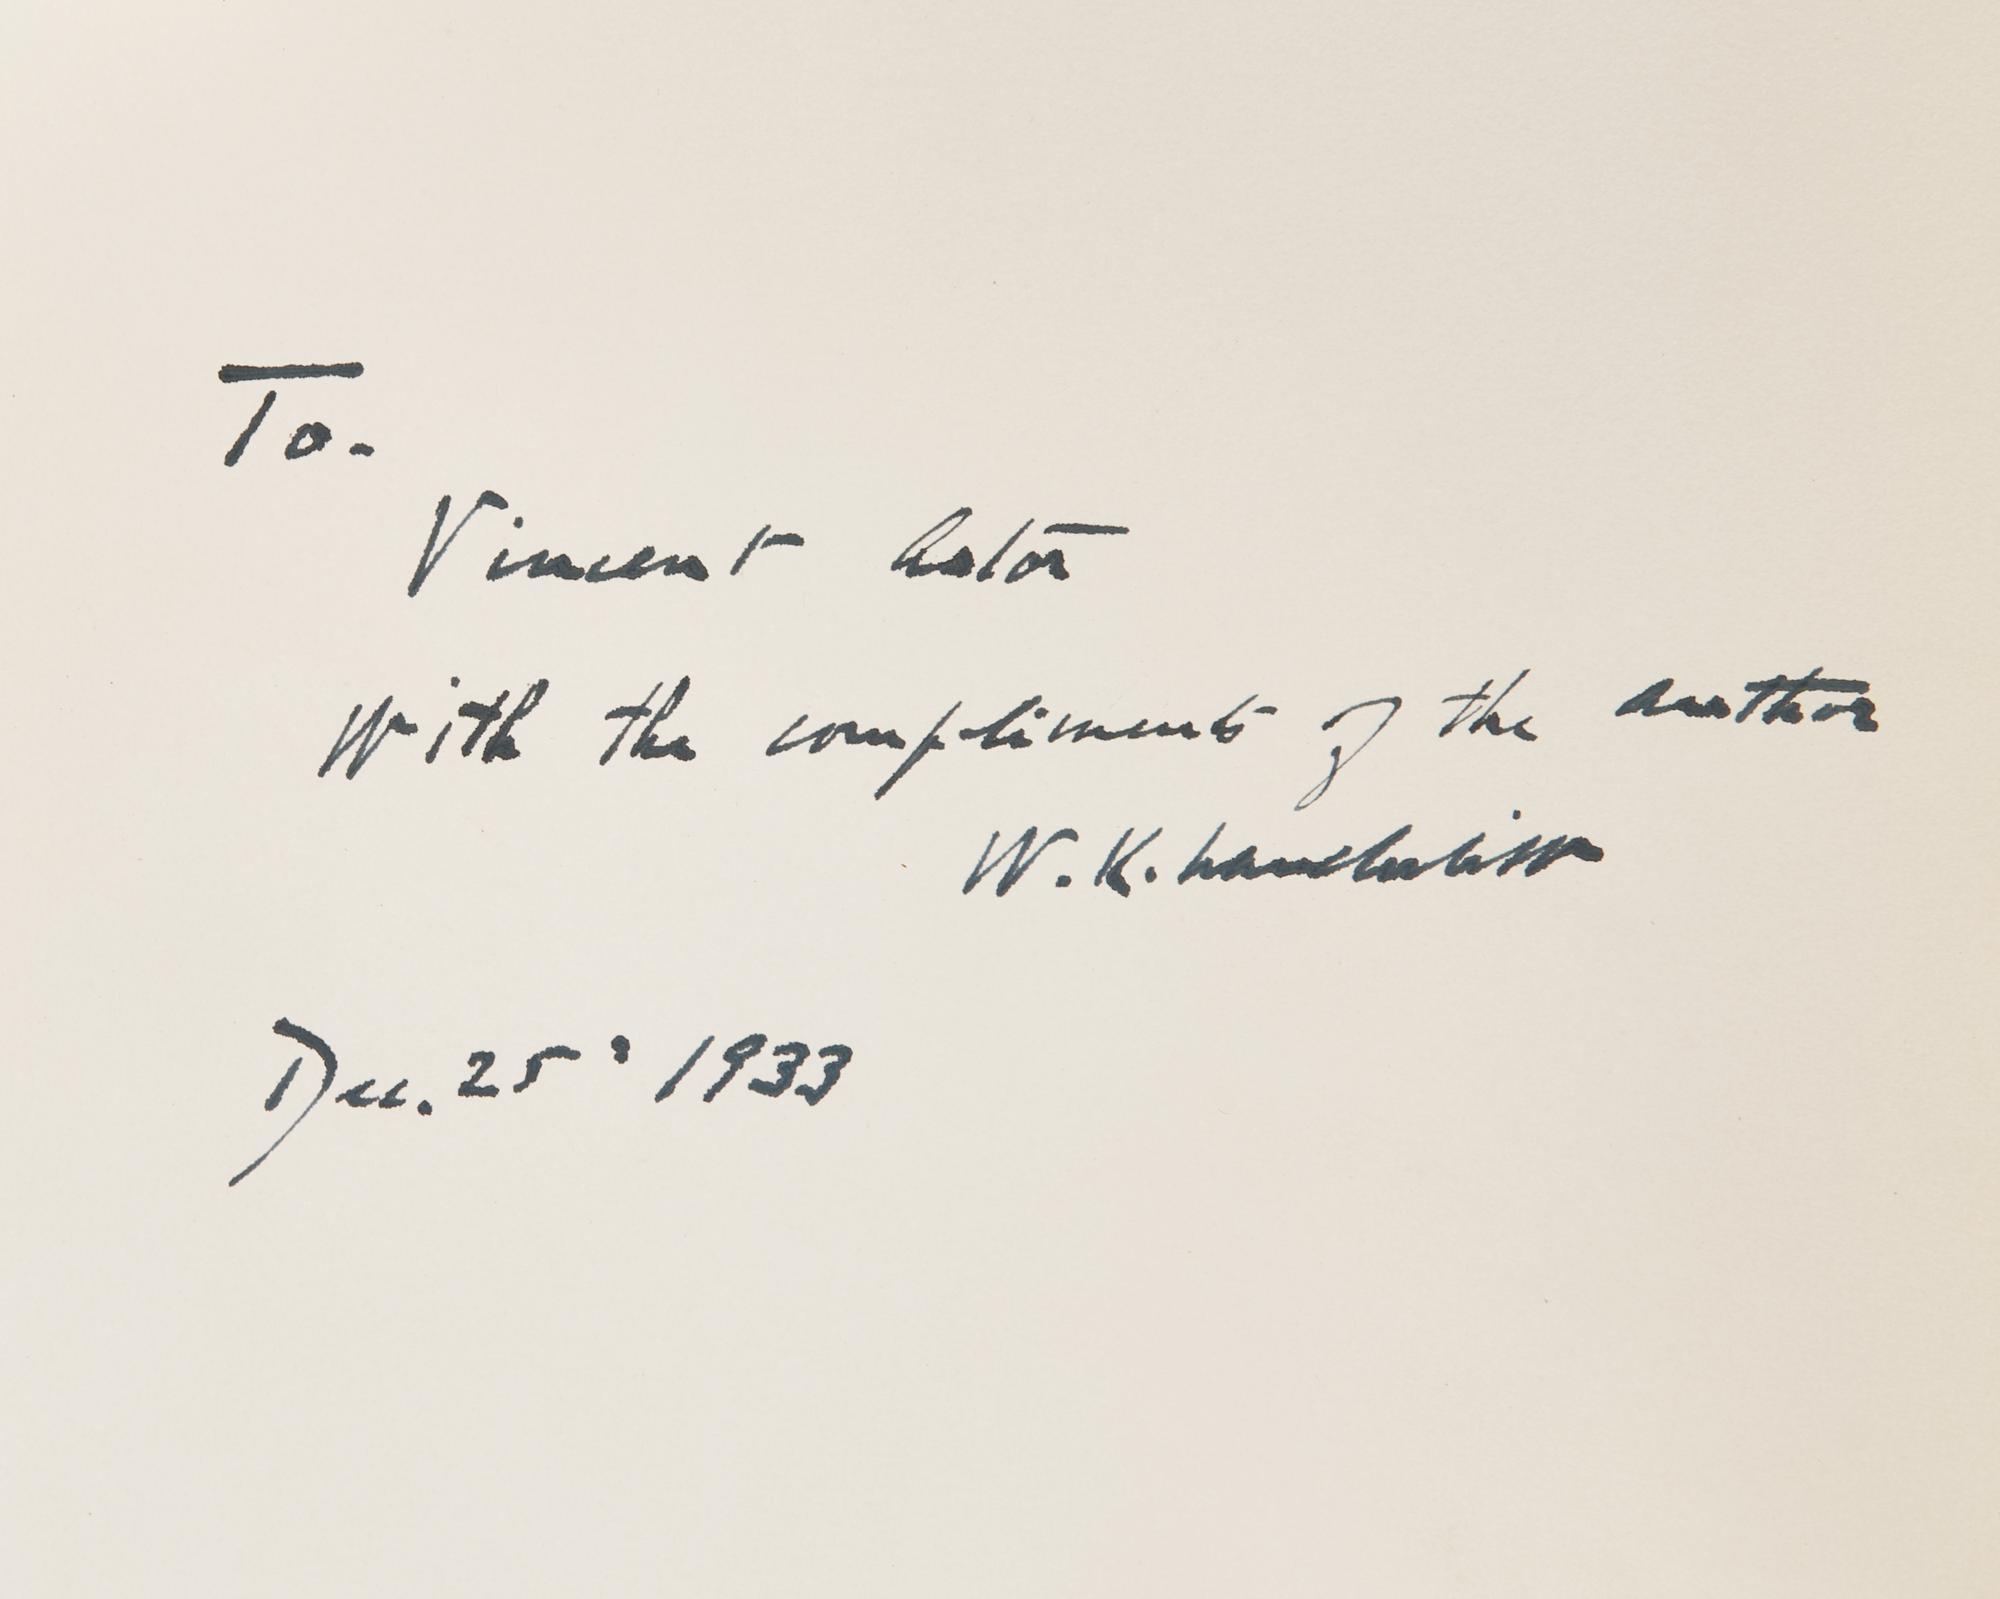 To.
Vincent Astor
With the compliments of the author
W.K. Vanderbilt
Dec. 25, 1933